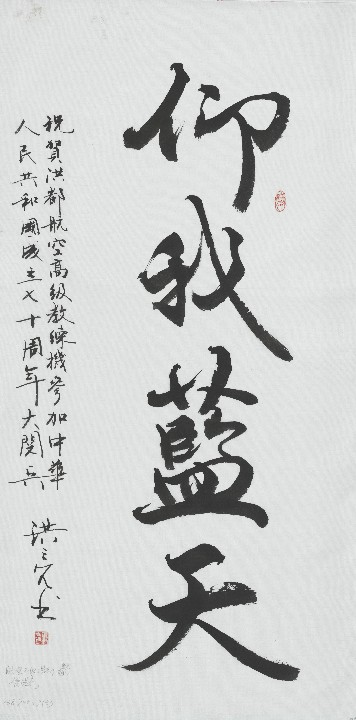 仰我藍天
祝賀洪都航空高级教練機參加中華
人民共和國成立七十周年大閱兵
洪
书